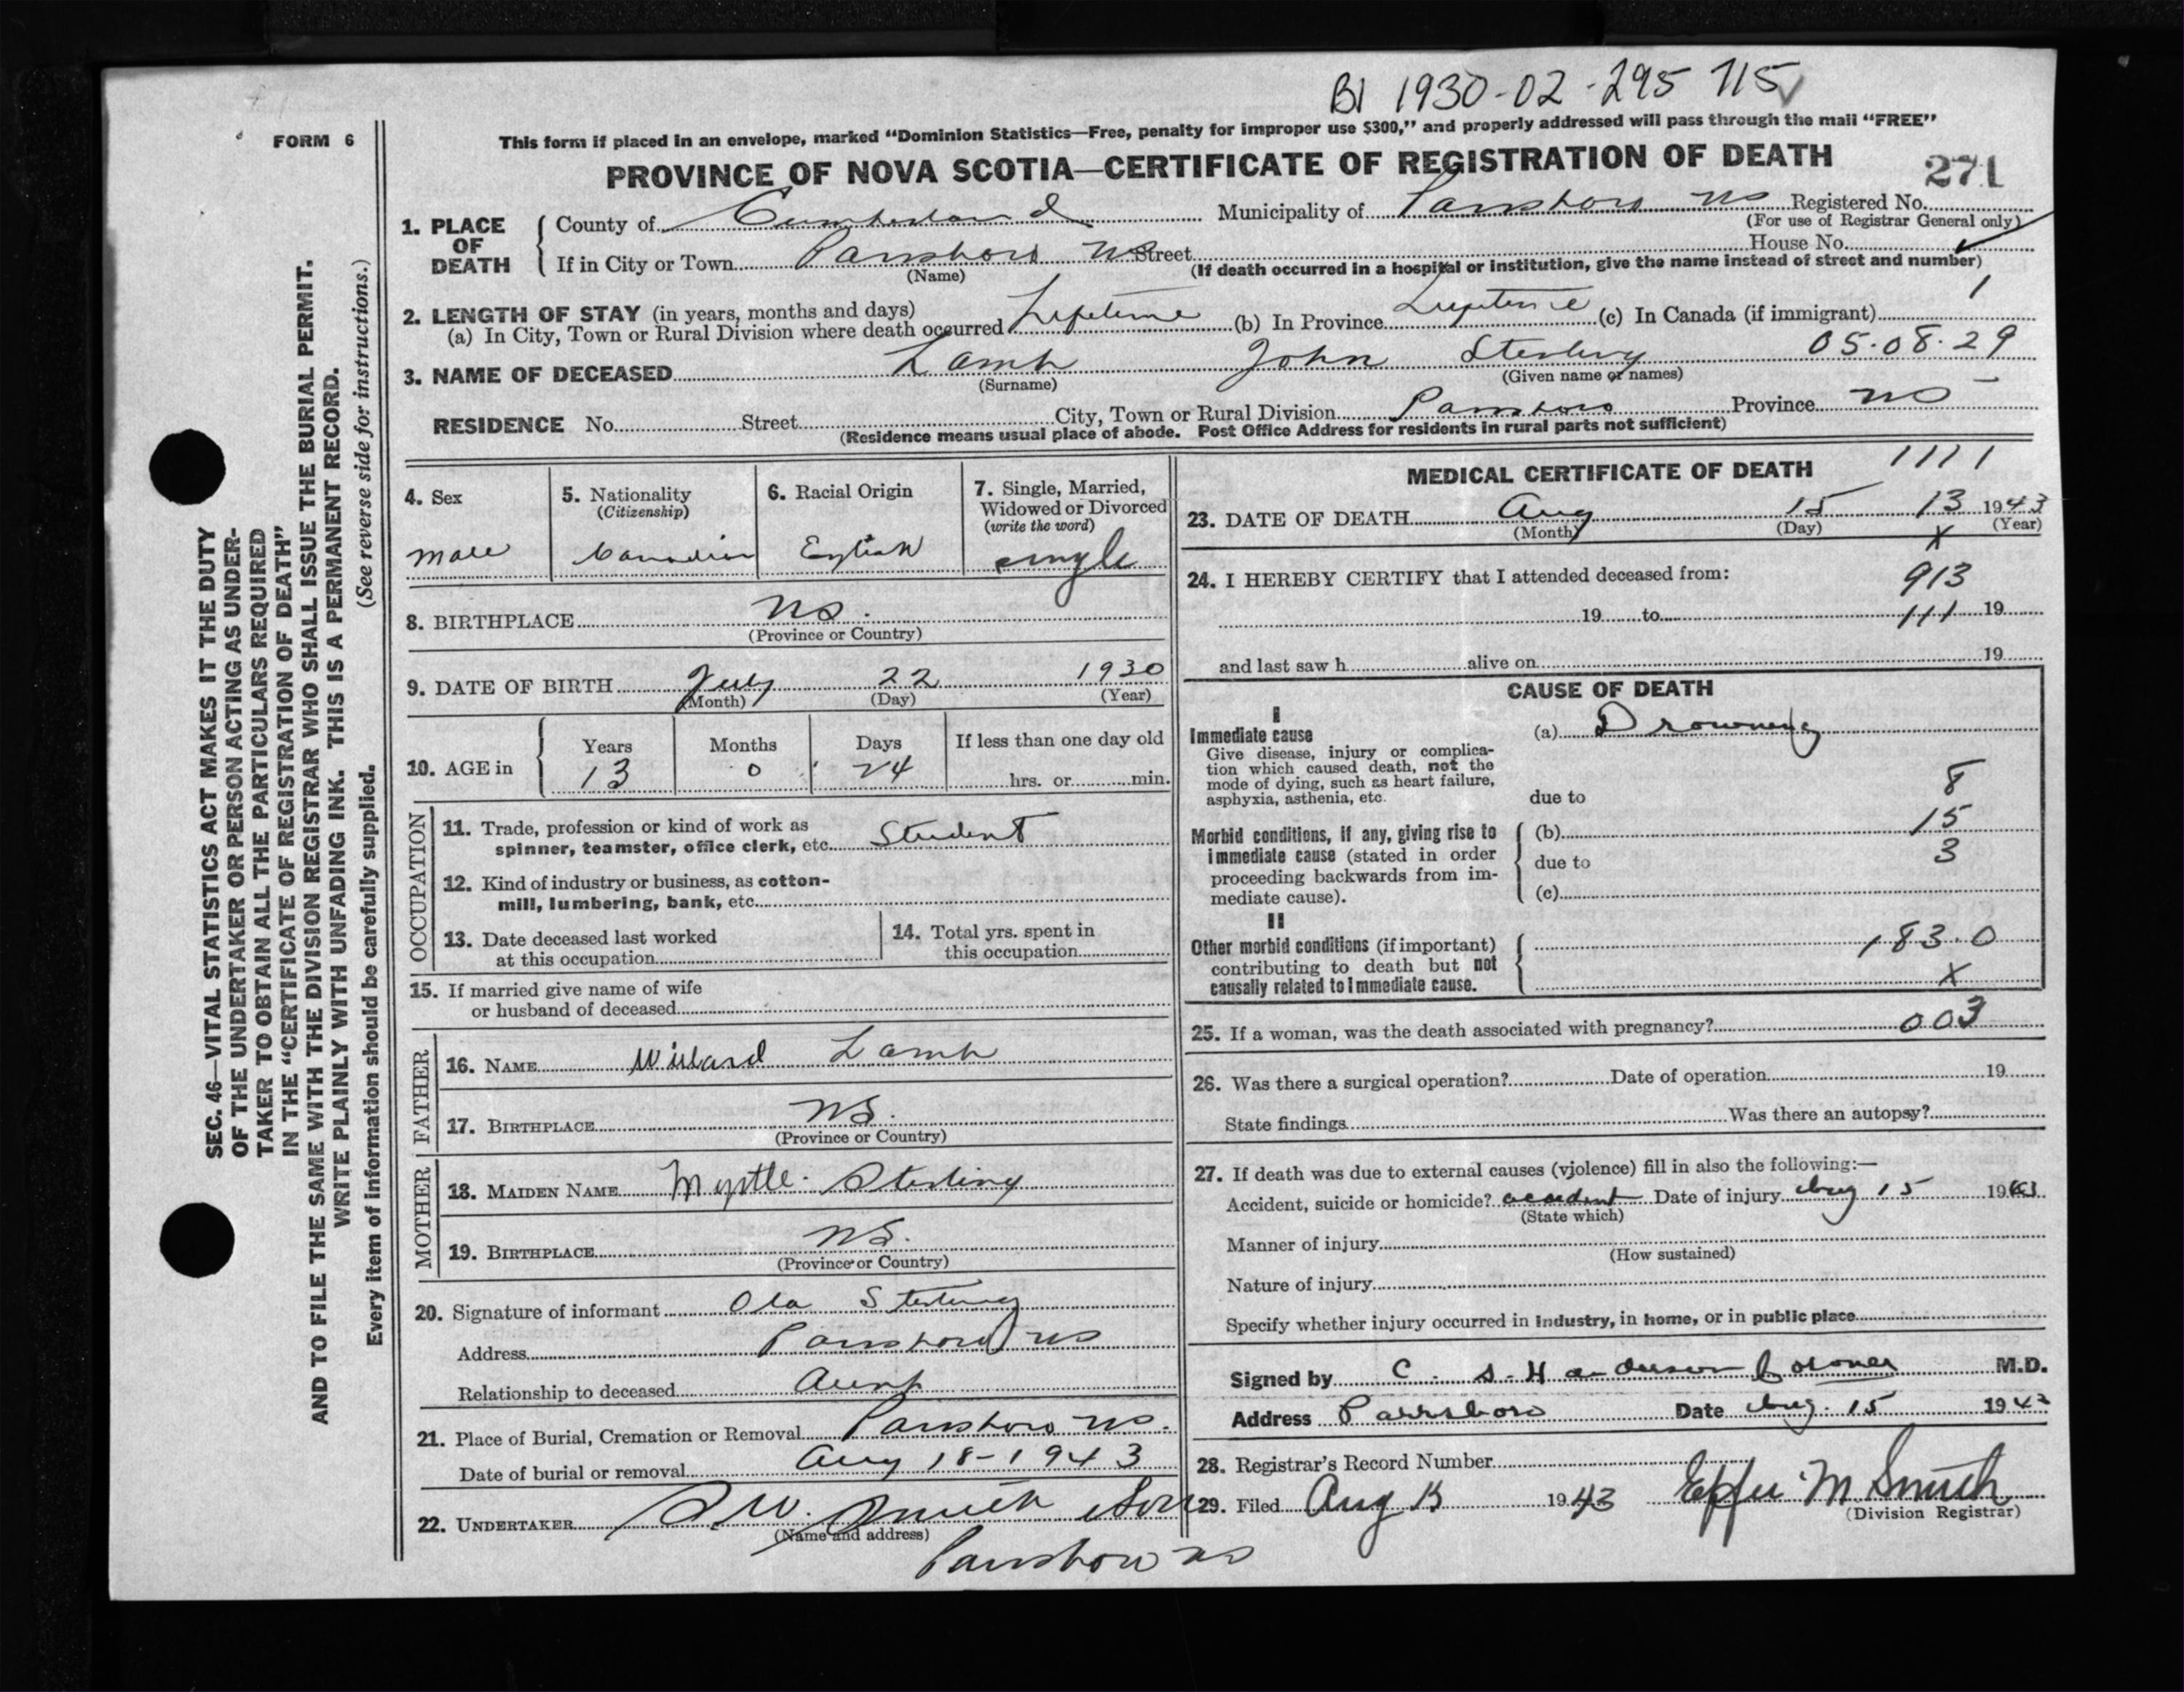 BI 1930-02-295 715
FORM 6
This form if placed in an envelope, marked "Dominion Statistics—Free, penalty for improper use $300," and properly addressed will pass through the mail "FREE"
PROVINCE OF NOVA SCOTIA—CERTIFICATE OF REGISTRATION OF DEATH
271
1. PLACE OF DEATH
County of Cumberland Municipality of Parrsboro NS Registered No.
(For use of Registrar General only)
If in City or Town Parrsboro NS Street House No.
(Name) (If death occurred in a hospital or institution, give the name instead of street and number)
1
2. LENGTH OF STAY (in years, months and days)
(a) In City, Town or Rural Division where death occurred Lifetime (b) In Province Lifetime (c) In Canada (if immigrant)
05.08.29
3. NAME OF DECEASED Lamb John Sterling
(Surname) (Given name or names)
RESIDENCE No. Street City, Town or Rural Division Parrsboro Province NS
(Residence means usual place of abode. Post Office Address for residents in rural parts not sufficient)
4. Sex
male
5. Nationality
(Citizenship)
Canadian
6. Racial Origin
English
7. Single, Married,
Widowed or Divorced
(write the word)
single
8. BIRTHPLACE NS.
(Province or Country)
9. DATE OF BIRTH July 22 1930
(Month) (Day) (Year)
10. AGE in
Years Months Days If less than one day old
13 0 24 hrs. or min.
OCCUPATION
11. Trade, profession or kind of work as
spinner, teamster, office clerk, etc. Student
12. Kind of industry or business, as cotton-
mill, lumbering, bank, etc.
13. Date deceased last worked
at this occupation
14. Total yrs. spent in
this occupation
15. If married give name of wife
or husband of deceased
FATHER
16. NAME Willard Lamb
17. BIRTHPLACE NS.
(Province or Country)
MOTHER
18. MAIDEN NAME Myrtle Sterling
19. BIRTHPLACE NS.
(Province or Country)
20. Signature of informant Ola Sterling
Address Parrsboro NS
Relationship to deceased Aunt
21. Place of Burial, Cremation or Removal Parrsboro NS.
Date of burial or removal Aug 18-1943
22. UNDERTAKER Smith & Son
(Name and address)
Parrsboro NS
MEDICAL CERTIFICATE OF DEATH
1111
23. DATE OF DEATH Aug 15 13 1943
(Month) (Day) (Year)
X
24. I HEREBY CERTIFY that I attended deceased from:
913
19 to 111 19
and last saw h alive on 19
CAUSE OF DEATH
I
Immediate cause
Give disease, injury or complica-
tion which caused death, not the
mode of dying, such as heart failure,
asphyxia, asthenia, etc.
(a) Drowning
due to
8
Morbid conditions, if any, giving rise to
immediate cause (stated in order
proceeding backwards from im-
mediate cause).
(b) 15
due to 3
(c)
II
Other morbid conditions (if important)
contributing to death but not
causally related to immediate cause.
183.0
X
25. If a woman, was the death associated with pregnancy? 003
26. Was there a surgical operation? Date of operation 19
State findings Was there an autopsy?
27. If death was due to external causes (violence) fill in also the following:—
Accident, suicide or homicide? accident Date of injury Aug 15 1943
(State which)
Manner of injury
(How sustained)
Nature of injury
Specify whether injury occurred in industry, in home, or in public place
Signed by C. S. Henderson Coroner M.D.
Address Parrsboro Date Aug. 15 1943
28. Registrar's Record Number
29. Filed Aug 1943 Effie M Smith
(Division Registrar)
SEC. 46—VITAL STATISTICS ACT MAKES IT THE DUTY
OF THE UNDERTAKER OR PERSON ACTING AS UNDER-
TAKER TO OBTAIN ALL THE PARTICULARS REQUIRED
IN THE "CERTIFICATE OF REGISTRATION OF DEATH"
AND TO FILE THE SAME WITH THE DIVISION REGISTRAR WHO SHALL ISSUE THE BURIAL PERMIT.
WRITE PLAINLY WITH UNFADING INK. THIS IS A PERMANENT RECORD.
Every item of information should be carefully supplied. (See reverse side for instructions.)